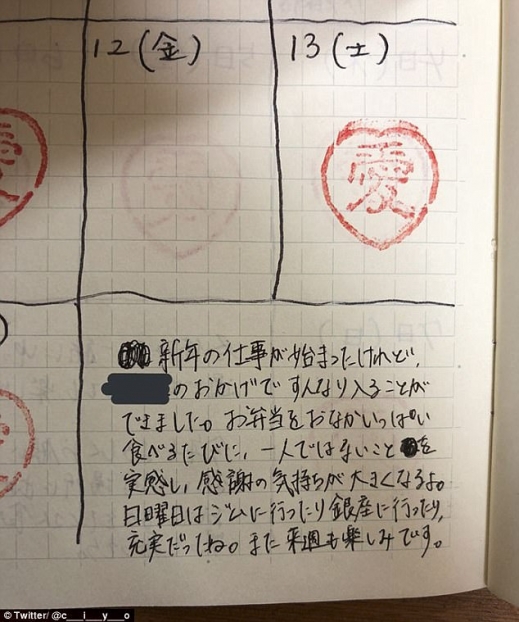 12(金)
13(土)
愛
愛
愛
新年の仕事が始まったけれど、
のおかげですんなり入ることが
できました。お弁当をおなかいっぱい
食べるたびに、一人ではないことを
実感し、感謝の気持ちが大きくなるよ。
日曜日はジムに行ったり銀座に行ったり、
充実だったね。また来週も楽しみです。
© Twitter/ @c___i___y___o